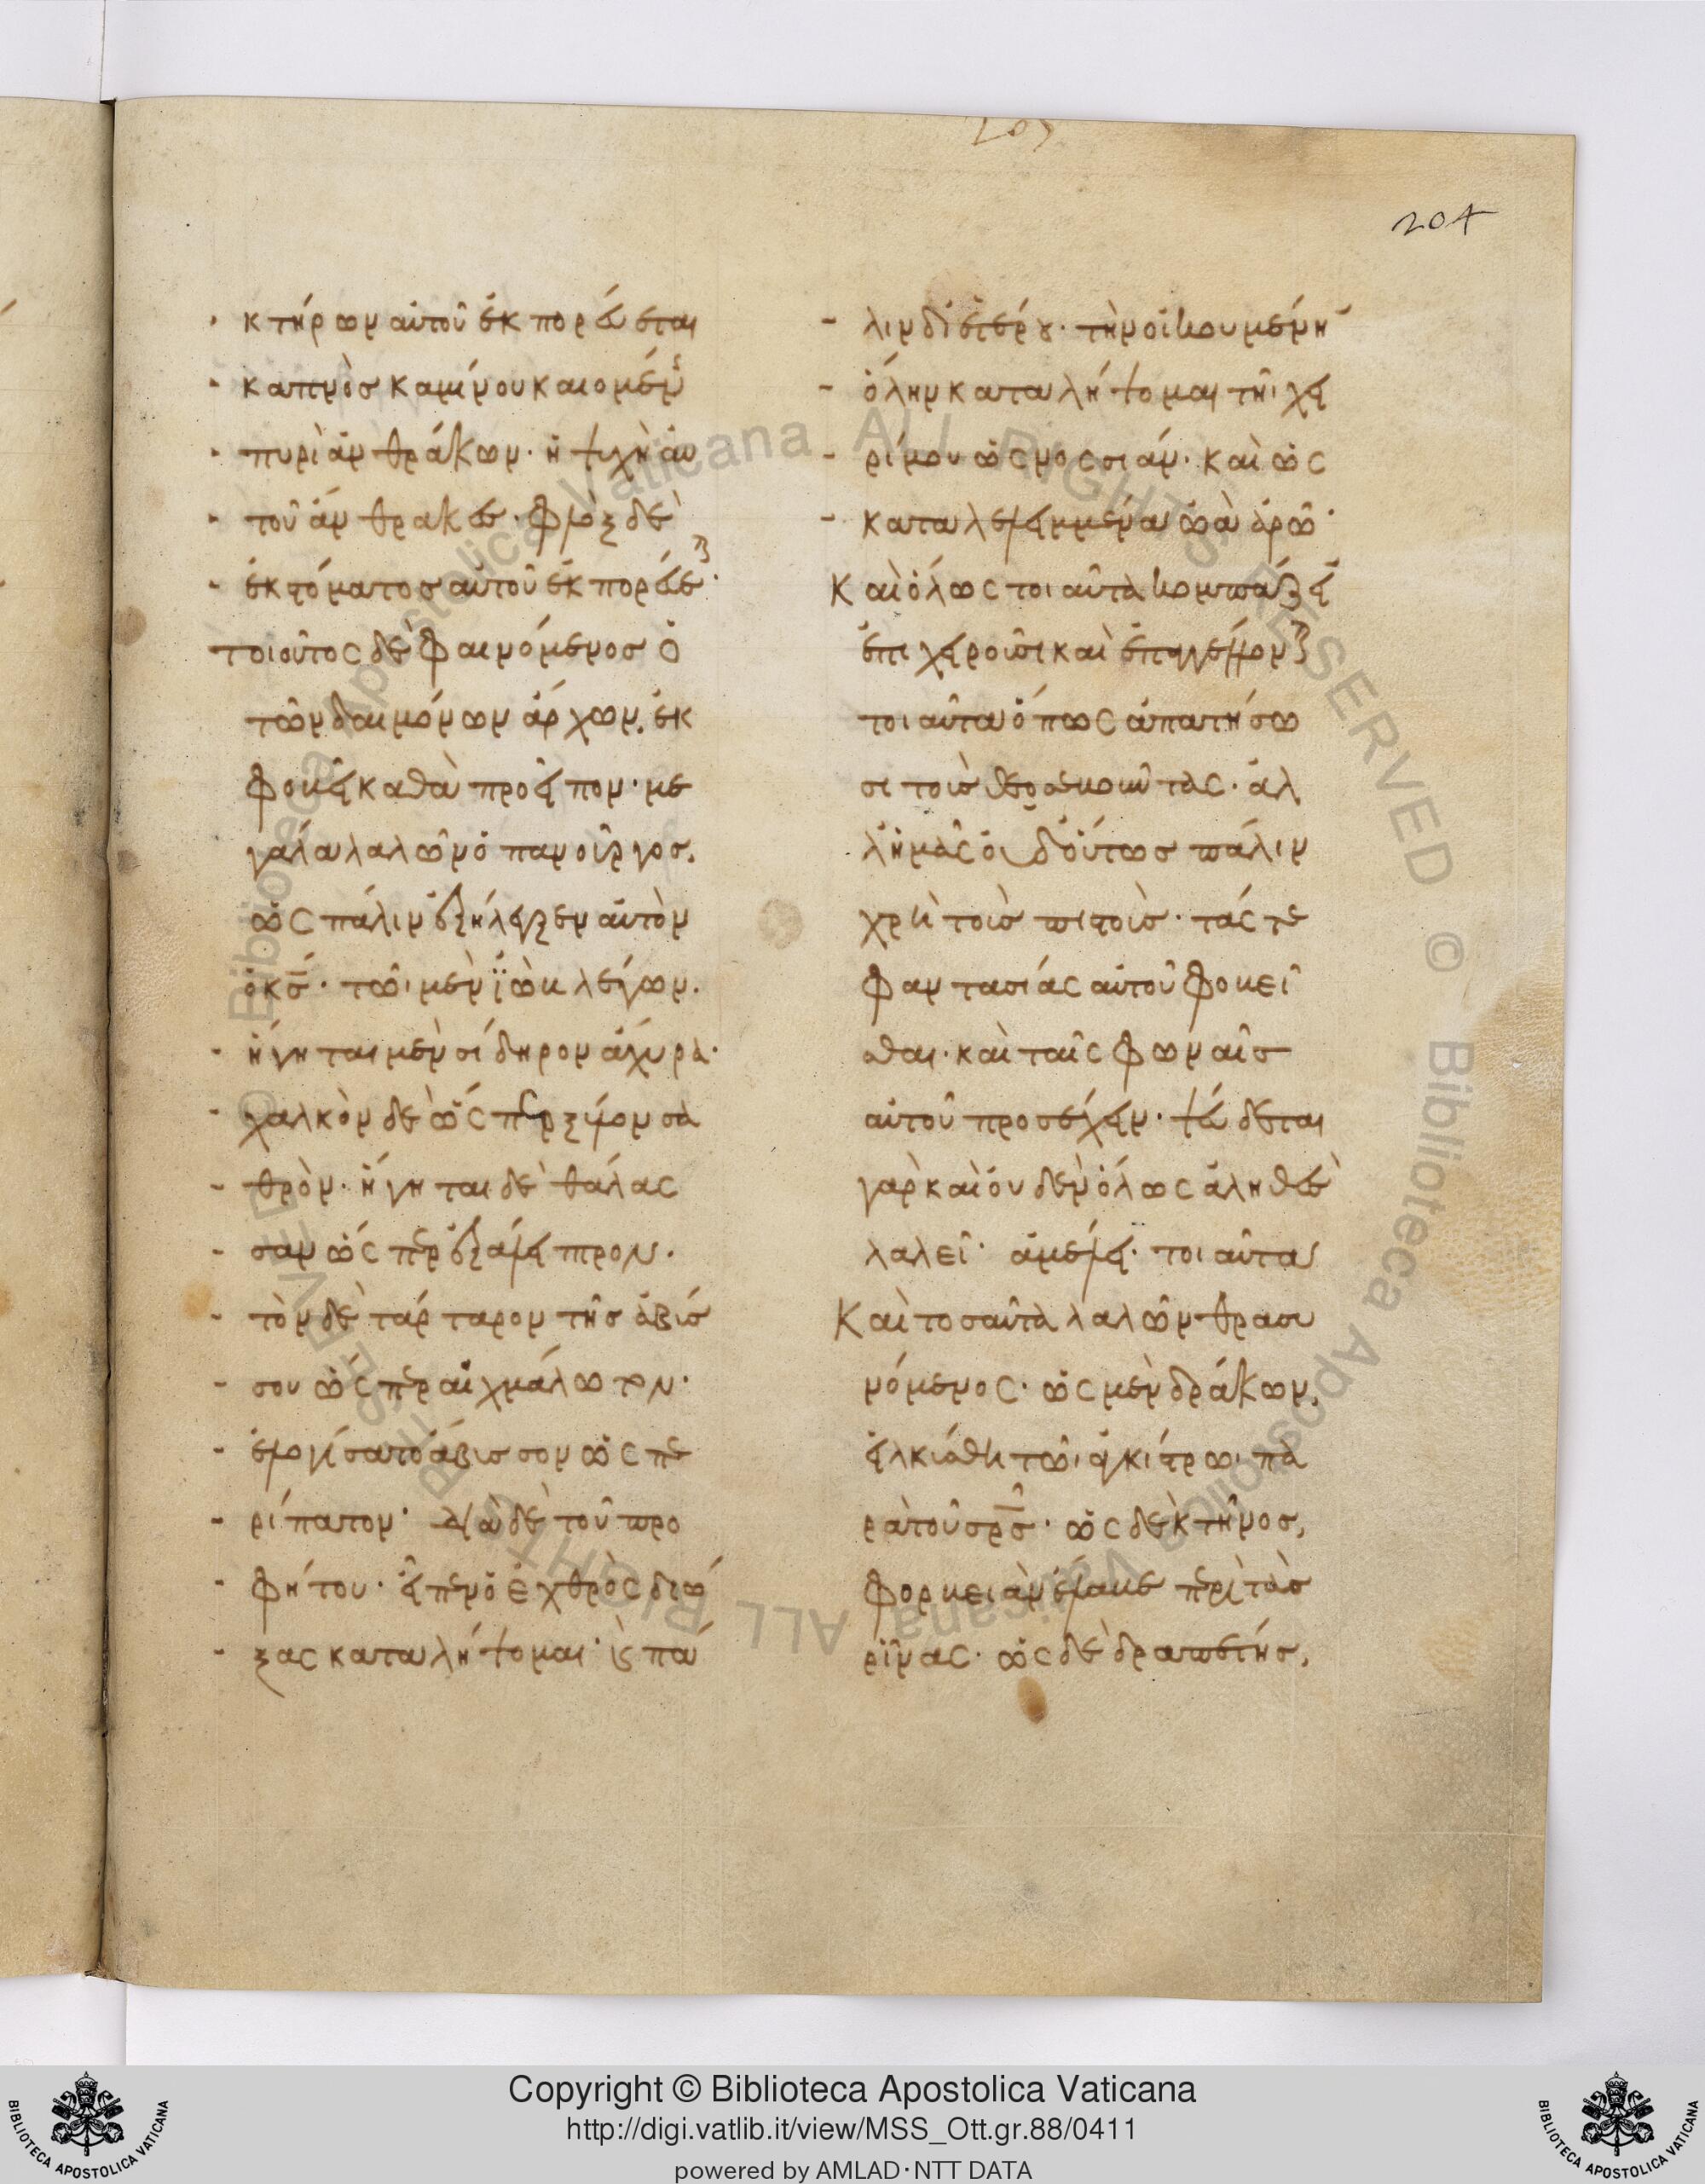 207
204
κτήρων αὐτοῦ ἐκπορεύεται
καπνὸσ καμίνου καιομένης
πυρὶ ἀνθράκων· ἡ ψυχὴ αὐ
τοῦ ἄνθρακες· φλὸξ δὲ
ἐκ στόματοσ αὐτοῦ ἐκπορεύεται·
τοιοῦτος δὲ φαινόμενοσ ὁ
τῶν δαιμόνων ἄρχων, ἐκ
φοβεῖ καθὰ προεῖπον· με
γάλα λαλῶν ὁ πανοῦργοσ,
ὡς πάλιν ἐξήλεγξεν αὐτὸν
ὁ κς̅· τῶι μὲν ϊὼβ λέγων.
ἥγηται μὲν σίδηρον ἄχυρα·
χαλκὸν δὲ ὥσπερ ξύλον σα
θρόν· ἥγηται δὲ θάλασ
σαν ὥσπερ ἐξάλειπτρον.
τὸν δὲ τάρταρον τῆσ ἀβύσ
σου ὥσπερ αἰχμάλωτον·
ἐλογίσατο ἄβυσσον ὡς πε
ρίπατον· διὰ δὲ τοῦ προ
φήτου· εἶπεν ὁ ἐχθρὸς διώ
ξας καταλήψομαι· καὶ πά
λιν δι' ἑτέρου· τὴν οἰκουμένην
ὅλην καταλήψομαι τῆι χει
ρί μου ὡς νοσσιάν· καὶ ὡς
καταλελειμμένα ὠὰ ἀρῶ·
Καὶ ὅλως τοιαῦτα κομπάζειν
ἐπιχειροῦσι καὶ ἐπαγγέλλονται
τοιαῦτα ὅπως ἀπατήσω
σι τοὺσ θεοσεβοῦντας· ἀλ
λ' ἡμᾶς οὐδ' οὕτωσ πάλιν
χρὴ τοὺσ πιστοὺσ· τάς τε
φαντασίας αὐτοῦ φοβεῖ
σθαι· καὶ ταῖς φωναῖσ
αὐτοῦ προσέχειν· ψεύδεται
γὰρ καὶ οὐδὲν ὅλως ἀληθὲσ
λαλεῖ· ἀμέλει· τοιαῦτα
Καὶ τοσαῦτα λαλῶν θρασυ
νόμενος· ὡς μὲν δράκων,
εἱλκύσθη τῶι ἀγκίστρωι πα
ρὰ τοῦ σρς̅· ὡς δὲ κτῆνοσ,
φορβειὰν ἔλαβε περὶ τὰσ
ρῖνας· ὡς δὲ δραπετήσ,
Copyright © Biblioteca Apostolica Vaticana
http://digi.vatlib.it/view/MSS_Ott.gr.88/0411
powered by AMLAD·NTT DATA